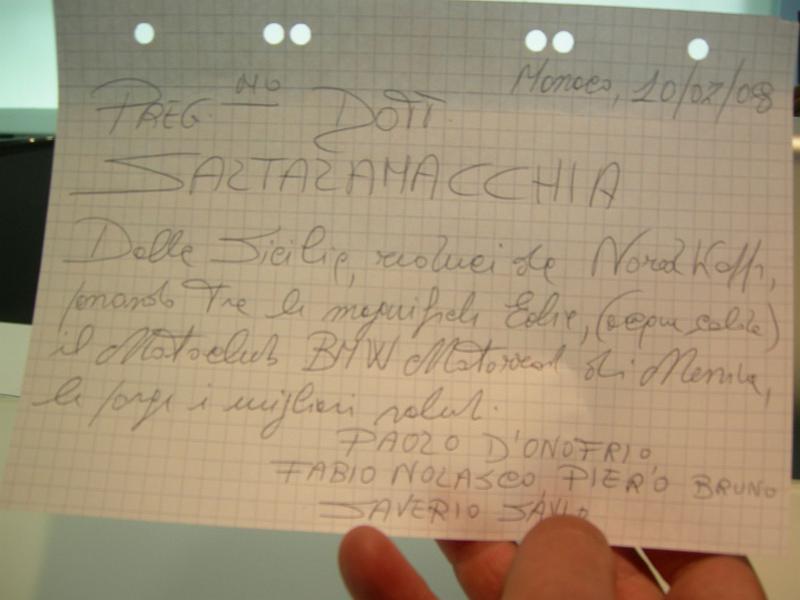 Monaco, 10/07/08
PREG.MO DOTT.
SALTALAMACCHIA
Dalla Sicilia, reduci da Nord Kapp,
passando tra le magnifiche Eolie, (acqua calda)
il Motoclub BMW Motorrad di Messina,
le porge i migliori saluti.
PAOLO D'ONOFRIO
FABIO NOLASCO PIERO BRUNO
SAVERIO SAVIO